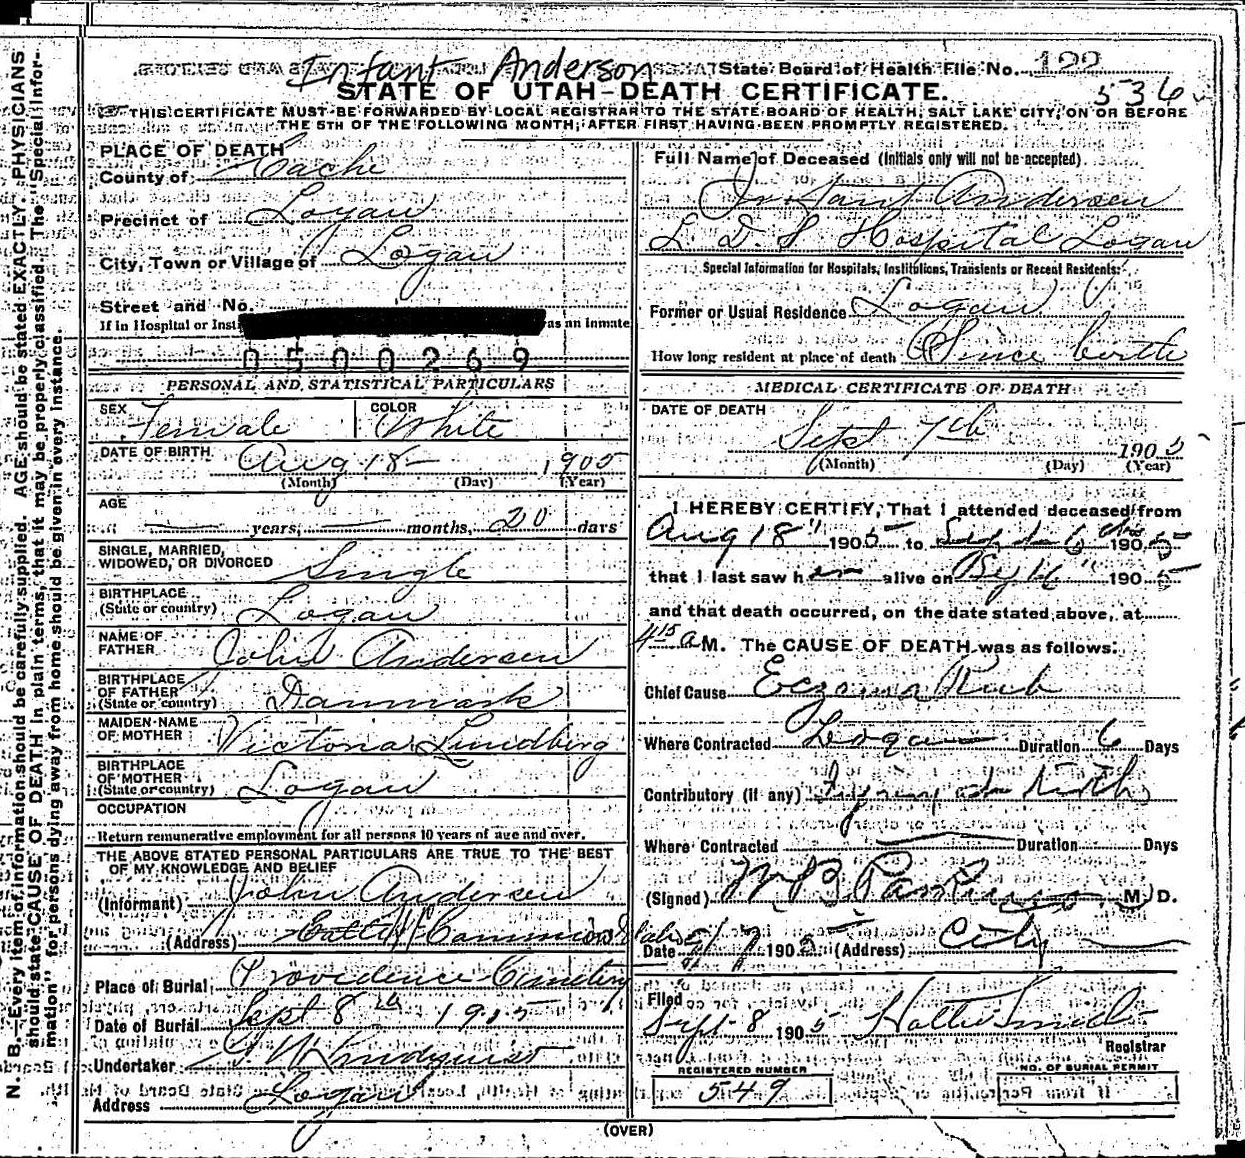 Infant Anderson
State Board of Health File No. 122
STATE OF UTAH-DEATH CERTIFICATE.
536
THIS CERTIFICATE MUST BE FORWARDED BY LOCAL REGISTRAR TO THE STATE BOARD OF HEALTH, SALT LAKE CITY, ON OR BEFORE
THE 5TH OF THE FOLLOWING MONTH, AFTER FIRST HAVING BEEN PROMPTLY REGISTERED.
N. B.—Every item of information should be carefully supplied. AGE should be stated EXACTLY. PHYSICIANS
should state CAUSE OF DEATH in plain terms, that it may be properly classified. The "Special Infor-
mation" for persons dying away from home should be given in every instance.
PLACE OF DEATH
County of Cache
Precinct of Logan
City, Town or Village of Logan
Street and No.
If in Hospital or as an Inmate
0500269
PERSONAL AND STATISTICAL PARTICULARS
SEX Female COLOR White
DATE OF BIRTH Aug 18 1905
(Month) (Day) (Year)
AGE
— years, — months, 20 days
SINGLE, MARRIED,
WIDOWED, OR DIVORCED Single
BIRTHPLACE
(State or country) Logan
NAME OF
FATHER John Andersen
BIRTHPLACE
OF FATHER
(State or country) Danmark
MAIDEN NAME
OF MOTHER Victoria Lundberg
BIRTHPLACE
OF MOTHER
(State or country) Logan
OCCUPATION
Return remunerative employment for all persons 10 years of age and over.
THE ABOVE STATED PERSONAL PARTICULARS ARE TRUE TO THE BEST
OF MY KNOWLEDGE AND BELIEF
(Informant) John Andersen
(Address)
Place of Burial Providence Cemetery
Date of Burial Sept 8th 1905
Undertaker
Address Logan
Full Name of Deceased (Initials only will not be accepted)
Infant Andersen
L. D. S Hospital Logan
Special Information for Hospitals, Institutions, Transients or Recent Residents:
Former or Usual Residence Logan
How long resident at place of death Since birth
MEDICAL CERTIFICATE OF DEATH
DATE OF DEATH
Sept 7th 1905
(Month) (Day) (Year)
I HEREBY CERTIFY, That I attended deceased from
Aug 18" 1905 to 6 1905
that I last saw her alive on 1905
and that death occurred, on the date stated above, at
4 15 a M. The CAUSE OF DEATH was as follows:
Chief Cause Eczema
Where Contracted Logan Duration 6 Days
Contributory (if any)
Where Contracted Duration Days
(Signed) M. D.
Date 9/7 1905 (Address) City
Filed
Sept 8 1905 Hattie Smith
Registrar
REGISTERED NUMBER
549
NO. OF BURIAL PERMIT
(OVER)